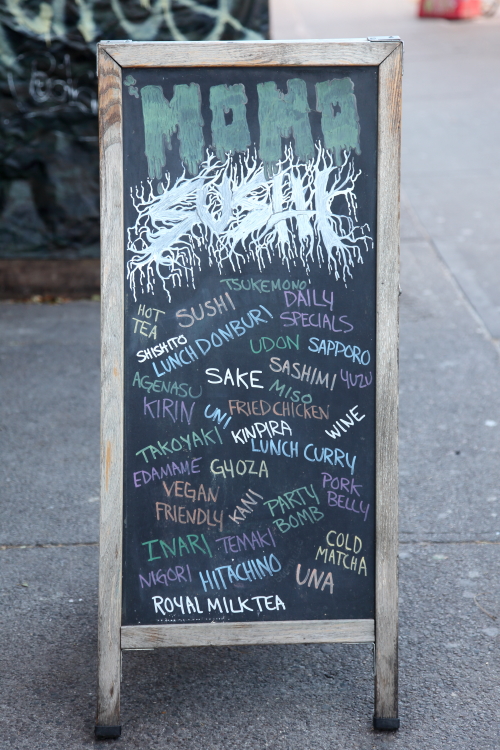 MOMO
SUSHI
TSUKEMONO
HOT
TEA
SUSHI
DAILY
SPECIALS
SHISHITO
LUNCH DONBURI
UDON
SAPPORO
AGENASU
SAKE
SASHIMI
YUZU
MISO
KIRIN
UNI
FRIED CHICKEN
WINE
TAKOYAKI
KINPIRA
LUNCH CURRY
EDAMAME
GYOZA
PORK
BELLY
VEGAN
FRIENDLY
KANI
PARTY
BOMB
INARI
TEMAKI
COLD
MATCHA
NIGORI
HITACHINO
UNA
ROYAL MILK TEA